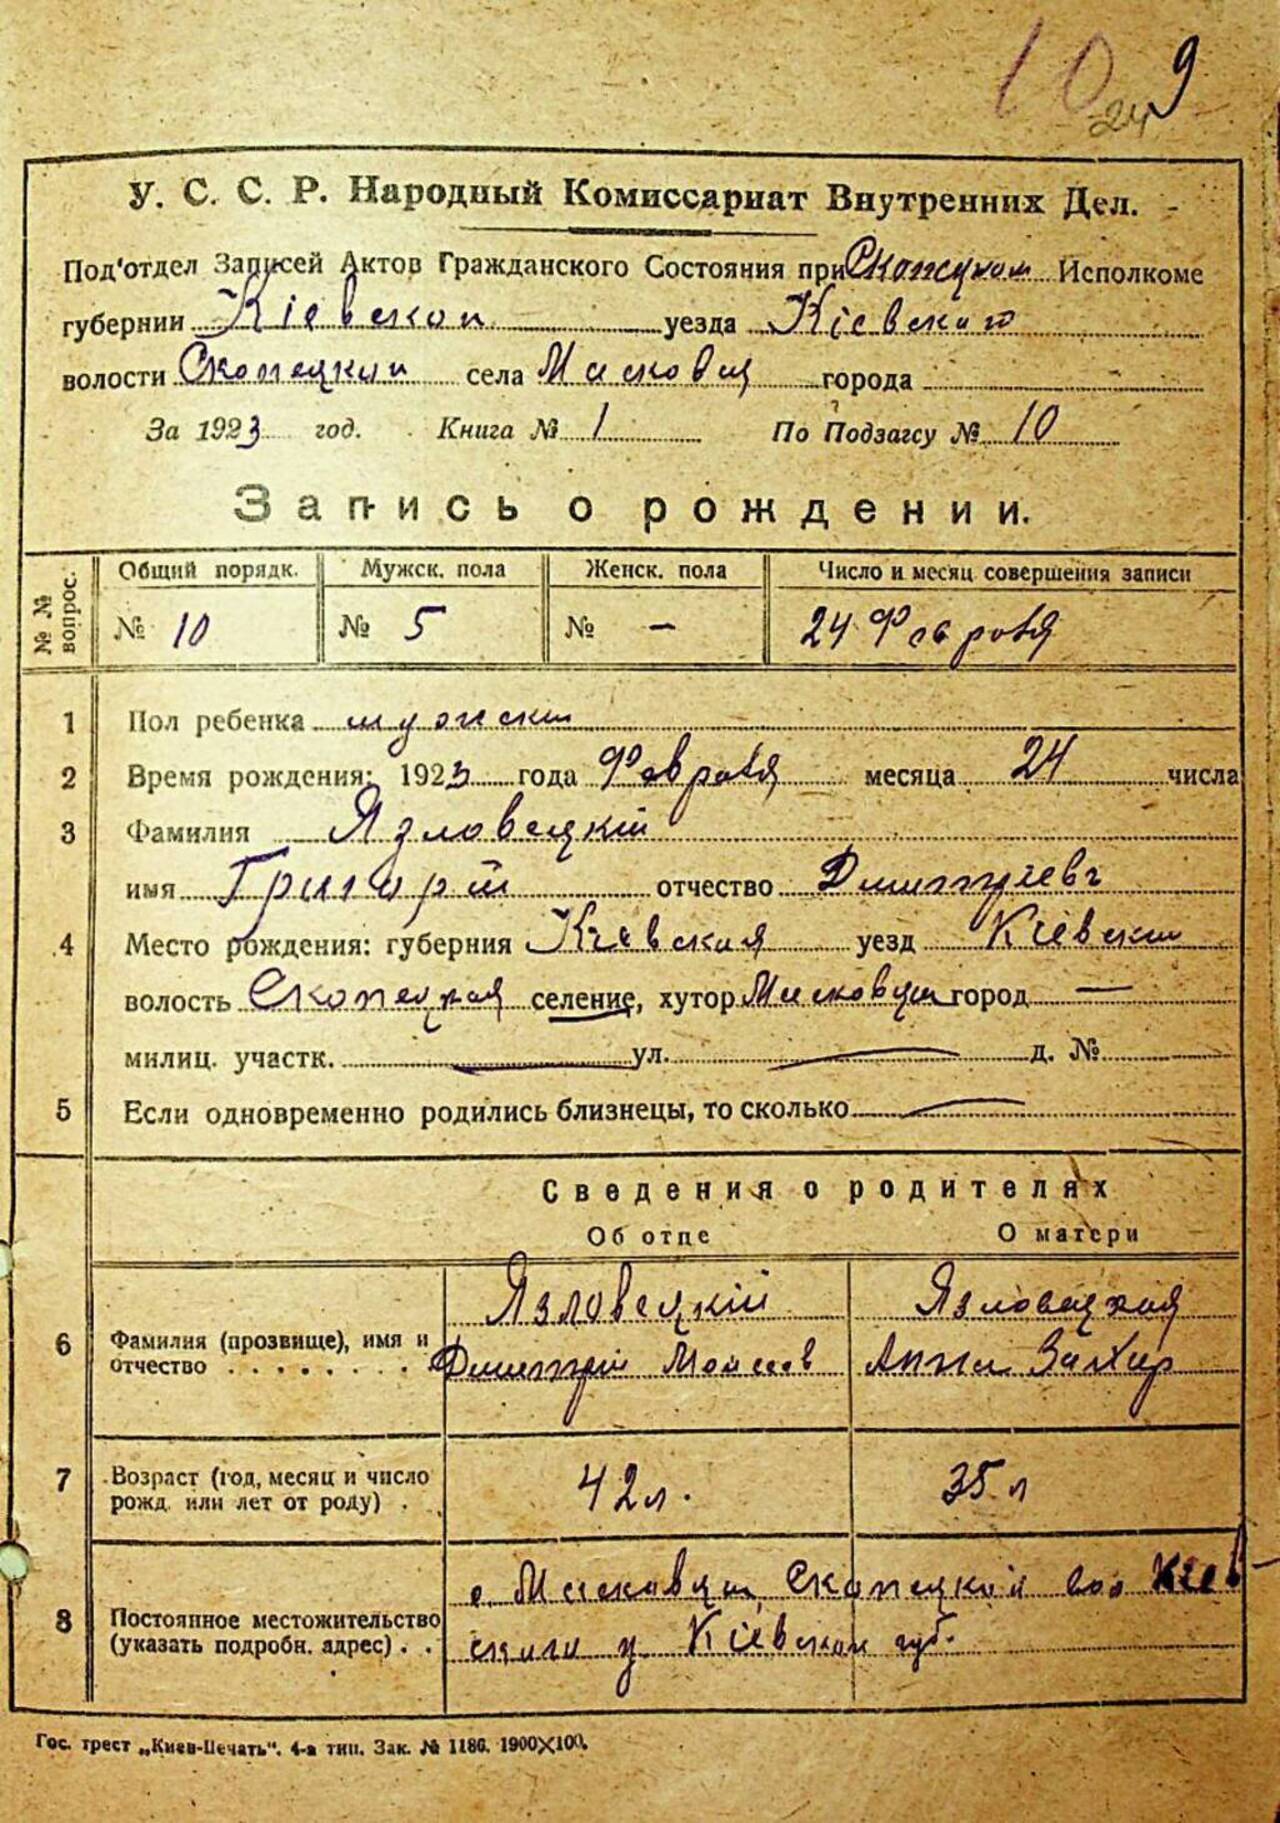 10 9
24
У. С. С. Р. Народный Комиссариат Внутренних Дел.
Под'отдел Записей Актов Гражданского Состояния при Скопецком Исполкоме
губернии Кіевской уезда Кіевского
волости Скопецкой села Масковцы города
За 1923 год. Книга № 1 По Подзагсу № 10
Запись о рождении.
№ № вопрос. Общий порядк. Мужск. пола Женск. пола Число и месяц совершения записи
№ 10 № 5 № — 24 Февраля
1 Пол ребенка мужски
2 Время рождения: 1923 года Февраля месяца 24 числа
3 Фамилия Язловецкій
имя Григорій отчество Дмитріевъ
4 Место рождения: губерния Кіевская уезд Кіевски
волость Скопецкая селение, хутор Масковцы город —
милиц. участк. — ул. — д. №
5 Если одновременно родились близнецы, то сколько —
Сведения о родителях
Об отце О матери
6 Фамилия (прозвище), имя и отчество . . . . . . . . Язловецкій Язловецкая
Дмитрій Моисеев Анна Захар
7 Возраст (год, месяц и число рожд. или лет от роду) . 42 л. 35 л
8 Постоянное местожительство (указать подробн. адрес) . . с. Масковцы Скопецкой вол Кіев
ского у Кіевской губ.
Гос. трест „Киев-Печать". 4-я тип. Зак. № 1186. 1900×100.